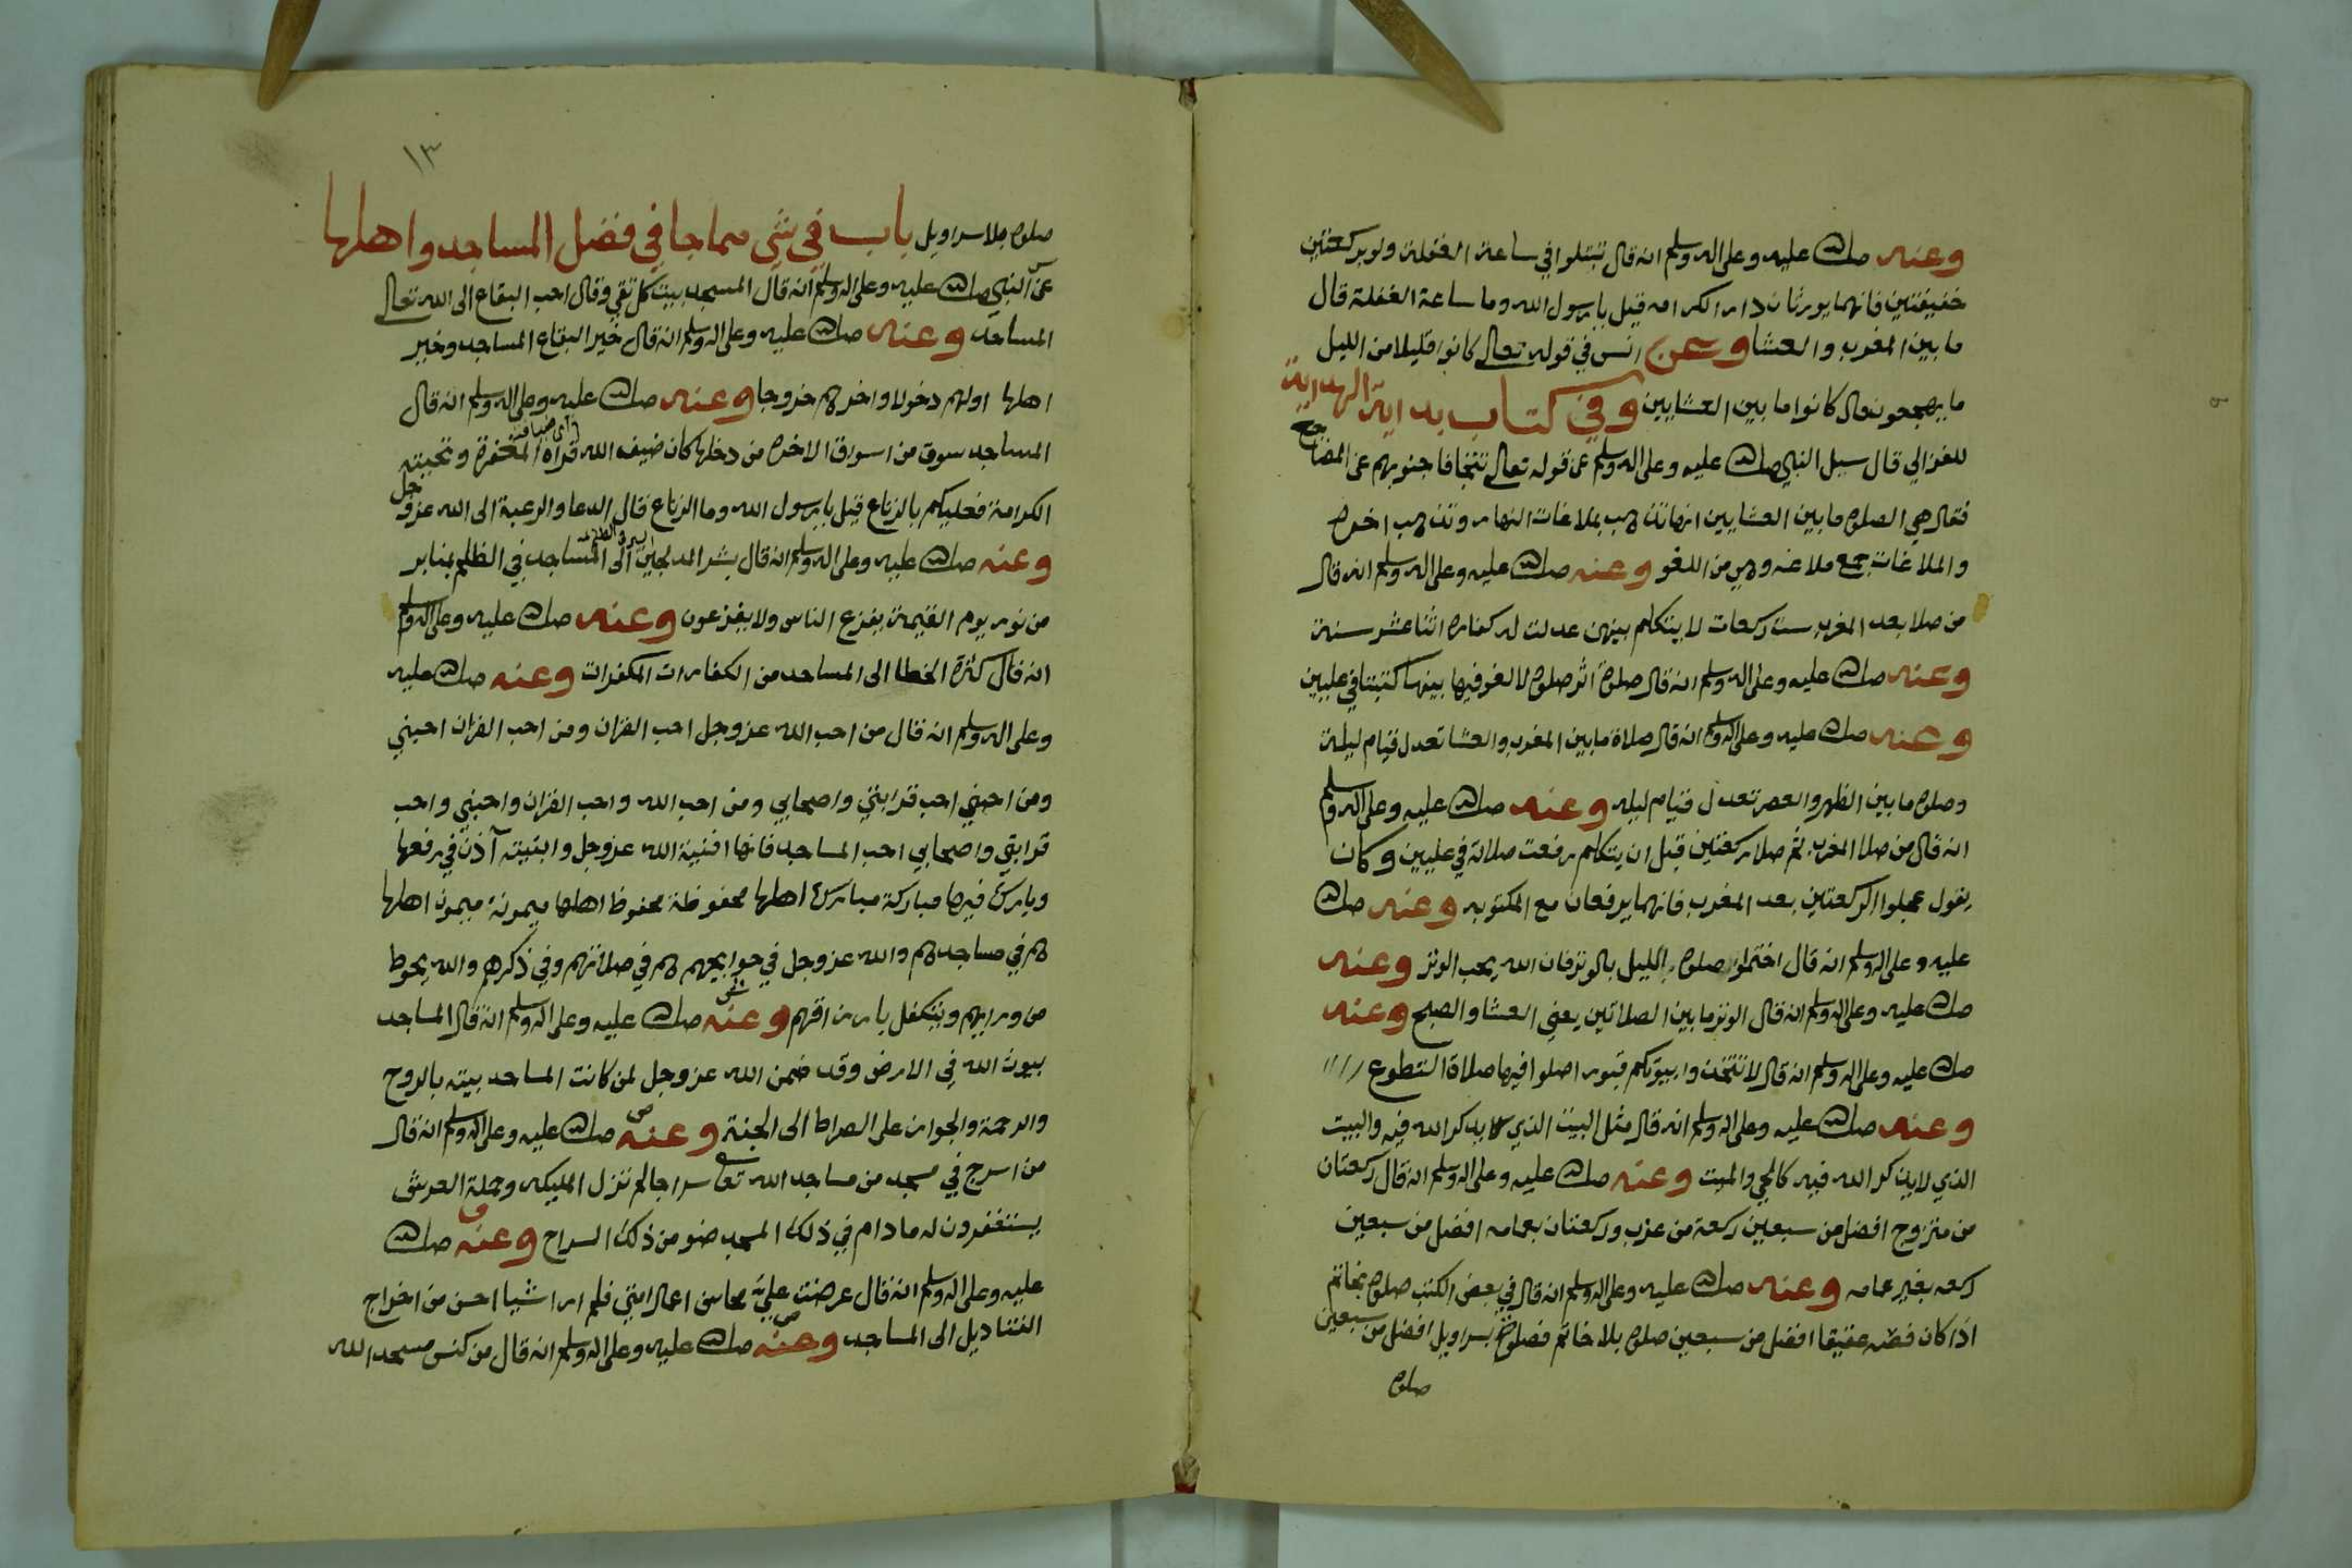 وعنه صلى الله عليه وعلى اله وسلم انه قال تبتلوا في ساعة الغفلة ولو بركعتين
خفيفتين فانهما يورثان دار الكرامه قيل يا رسول الله وما ساعة الغفلة قال
ما بين المغرب والعشا وعن انس في قوله تعالى كانوا قليلا من الليل
ما يهجعون قال كانوا ما بين العشايين وفي كتاب بداية الهداية
للغزالي قال سيل النبي صلى الله عليه وعلى اله وسلم عن قوله تعالى تتجافا جنوبهم عن المضاجع
فقال هي الصلوة ما بين العشايين انها تذهب بملاغات النهار وتذهب اخره
والملاغات جمع ملاغه وهي من اللغو وعنه صلى الله عليه وعلى اله وسلم انه قال
من صلا بعد المغرب ست ركعات لا يتكلم بينهن عدلت له كفاره اثنا عشر سنة
وعنه صلى الله عليه وعلى اله وسلم انه قال صلوة اثر صلوة لا لغو فيها بينهما كتبتا في عليين
وعنه صلى الله عليه وعلى اله وسلم انه قال صلاة ما بين المغرب والعشا تعدل قيام ليلة
وصلوة ما بين الظهر والعصر تعدل قيام ليله وعنه صلى الله عليه وعلى اله وسلم
انه قال من صلا المغرب ثم صلا ركعتين قبل ان يتكلم رفعت صلاته في عليين وكان
يقول عجلوا الركعتين بعد المغرب فانهما يرفعان مع المكتوبه وعنه صلى الله
عليه وعلى اله وسلم انه قال اختموا صلوة الليل بالوتر فان الله يحب الوتر وعنه
صلى الله عليه وعلى اله وسلم انه قال الوتر ما بين الصلاتين يعني العشا والصبح وعنه
صلى الله عليه وعلى اله وسلم انه قال لا تتخذوا بيوتكم قبور اصلوا فيها صلاة التطوع
وعنه صلى الله عليه وعلى اله وسلم انه قال مثل البيت الذي لا يذكر الله فيه والبيت
الذي لا يذكر الله فيه كالحي والميت وعنه صلى الله عليه وعلى اله وسلم انه قال ركعتان
من متزوج افضل من سبعين ركعة من عزب وركعتان بعمامه افضل من سبعين
ركعه بغير عمامه وعنه صلى الله عليه وعلى اله وسلم انه قال في بعض الكتب صلوة بخاتم
اذا كان فصه عقيقا افضل من سبعين صلوة بلا خاتم فصلوة بسراويل افضل من سبعين
صلوة
١٣
صلوة بلا سراويل باب في شي مما جا في فضل المساجد واهلها
عن النبي صلى الله عليه وعلى اله وسلم انه قال المسجد بيت كل تقي وقال احب البقاع الى الله تعالى
المساجد وعنه صلى الله عليه وعلى اله وسلم انه قال خير البقاع المساجد وخير
اهلها اولهم دخولا واخرهم خروجا وعنه صلى الله عليه وعلى اله وسلم انه قال
اي ضيافته
المساجد سوق من اسواق الاخرة من دخلها كان ضيف الله قراه المغفرة وتحيته
الكرامة فعليكم بالرتاع قيل يا رسول الله وما الرتاع قال الدعا والرغبة الى الله عز وجل
وعنه صلى الله عليه وعلى اله وسلم انه قال بشر المدلجين الى المساجد في الظلم بمنابر
من نور يوم القيمة يفزع الناس ولا يفزعون وعنه صلى الله عليه وعلى اله وسلم
انه قال كثرة الخطا الى المساجد من الكفارات المكفرات وعنه صلى الله عليه
وعلى اله وسلم انه قال من احب الله عز وجل احب القران ومن احب القران احبني
ومن احبني احب قرابتي واصحابي ومن احب الله واحب القران واحبني واحب
قرابتي واصحابي احب المساجد فانها افنية الله عز وجل وابنيته آذن في رفعها
وبارك فيها مباركة مبارك اهلها محفوظة محفوظ اهلها ميمونة ميمون اهلها
هم في مساجدهم والله عز وجل في حوايجهم هم في صلاتهم وفي ذكرهم والله يحوط
من ورايهم ويتكفل بارزاقهم وعنه صلى الله عليه وعلى اله وسلم انه قال المساجد
بيوت الله في الارض وقد ضمن الله عز وجل لمن كانت المساجد بيته بالروح
والرحمة والجواز على الصراط الى الجنة وعنه صلى الله عليه وعلى اله وسلم انه قال
من اسرج في مسجد من مساجد الله تعالى سراجا لم تزل المليكه وحملة العرش
يستغفرون له ما دام في ذلك المسجد ضو من ذلك السراج وعنه صلى الله
عليه وعلى اله وسلم انه قال عرضت علي محاسن اعمال امتي فلم ار اشيا احسن من اخراج
القناديل الى المساجد وعنه صلى الله عليه وعلى اله وسلم انه قال من كنس مسجد الله